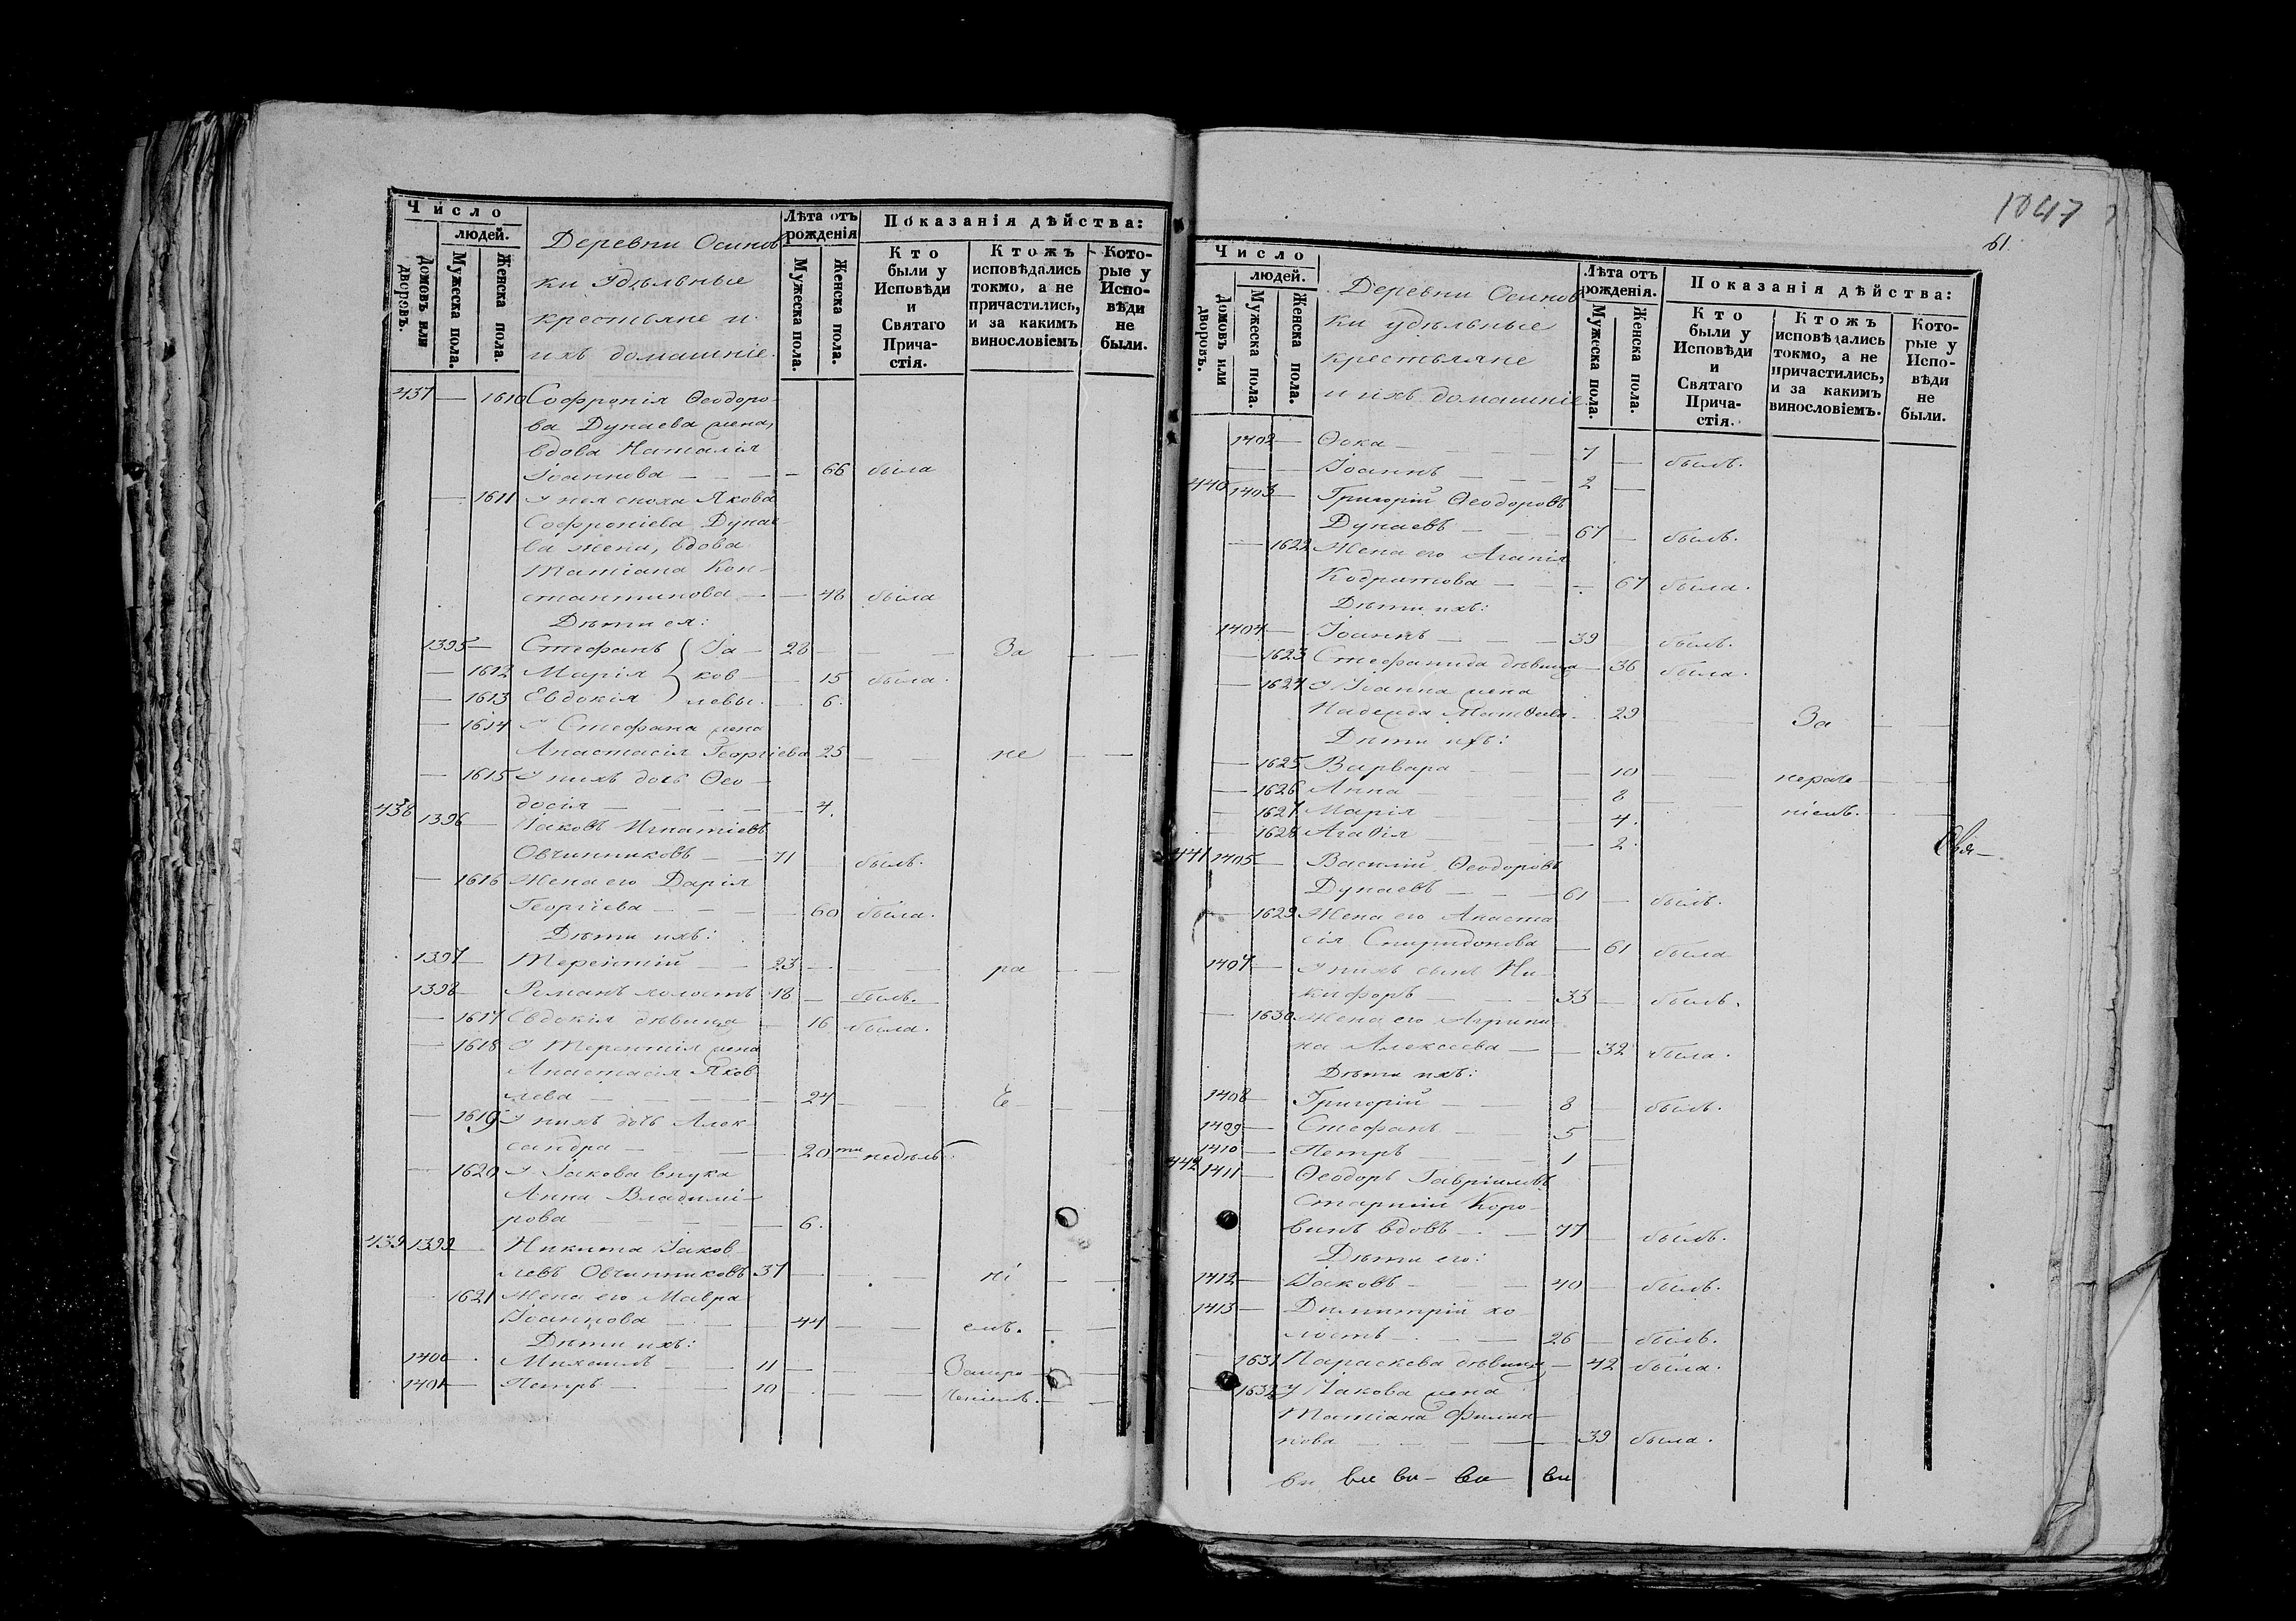 Число
людей.
домовъ или дворовъ.
Мужеска пола.
Женска пола.
Деревни Осинов
ки удѣльные
крестьяне и
ихъ домашніе.
Лѣта отъ рожденія
Мужеска пола.
Женска пола.
Показанія дѣйства:
Кто были у Исповѣди и Святаго Прича-стія.
Ктожъ исповѣдались токмо, а не причастились, и за какимъ винословіемъ
Кото-рые у Испо-вѣди не были.
437 — 1610 Софронія Ѳеодоро-
ва Дунаева жена,
вдова Наталія
Іоаннова — — — 66 была
— 1611 У нея сноха Якова
Софроніева Дунае-
ва жена, вдова
Татіана Кон-
стантинова — — 48 была
Дѣти ея:
1395 — Стефанъ Іа- 28 — — — За — —
— 1612 Марія ков- — 15 была.
— 1613 Евдокія левы. — 6.
— 1614 У Стефана жена
Анастасія Георгіева 25 — — не — —
— 1615 У нихъ дочь Ѳео-
досія — — — — 4.
438 1396 — Іаковъ Игнатіевъ
Овчинниковъ — — 71 былъ.
— 1616 Жена его Дарія
Георгіева — — — 60 была.
Дѣти ихъ:
1397 — Терентій — — 23 — — — ра — —
1398 — Романъ холостъ 18 — былъ.
— 1617 Евдокія дѣвица — 16 была.
— 1618 У Терентія жена
Анастасія Яков-
лева — — — — 24 — — че — —
— 1619 У нихъ дочь Алек-
сандра — — — 20 ти недѣль.
— 1620 У Іакова внука
Анна Владимі-
рова — — — — 6.
439 1399 — Никита Іаков-
левъ Овчинниковъ 37 — — — ні — —
— 1621 Жена его Мавра
Іоаннова — — — 44 — — емъ. — —
Дѣти ихъ:
1400 — Михаилъ — — 11 — — — —
1401 — Петръ — — — 10 — — — —
1047
61.
Число
людей.
домовъ или дворовъ.
Мужеска пола.
Женска пола.
Деревни Осинов
ки удѣльные
крестьяне
и ихъ домашніе
Лѣта отъ рожденія.
Мужеска пола.
Женска пола.
Показанія дѣйства:
Кто были у Исповѣди и Святаго Прича-стія.
Ктожъ исповѣдались токмо, а не причастились, и за какимъ винословіемъ.
Кото-рые у Испо-вѣди не были.
1402 — Ѳока — — — — 7 — былъ.
— — Іоаннъ — — — 2 —
440 1403 — Григорій Ѳеодоровъ
Дунаевъ — — — 67 — былъ.
— 1622 Жена его Агапія
Кодратова — — — 67 была.
Дѣти ихъ:
1404 — Іоаннъ — — — 39 былъ.
— 1623 Стефанида дѣвица — 36 была.
— 1624 У Іоанна жена
Надежда Матѳеева. — 29 — — За — —
Дѣти ихъ:
— 1625 Варвара — — — 10 — нераче — —
— 1626 Анна — — — — 8 —
— 1627 Марія — — — — 4. ніемъ. — —
— 1628 Агаѳія — — — — 2.
441 1405 — Василій Ѳеодоровъ
Дунаевъ — — — 61 — былъ.
— 1629 Жена его Анаста
сія Спиридонова — 61 была
1407 — У нихъ сынъ Ни-
кифоръ — — — 33 — былъ.
— 1630 Жена его Агрипи
на Алексеева — — 32 была.
Дѣти ихъ:
1408 — Григорій — — 8 — былъ.
1409 — Стефанъ — — 5 —
1410 — Петръ — — 1 —
442 1411 — Ѳеодоръ Гавріиловъ
Старшій Коро-
винъ вдовъ — . — 77 — былъ.
Дѣти его:
1412 — Іаковъ — — — 40 — былъ.
1413 — Димитрій хо-
лостъ — . — — 26 — былъ.
— 1631 Параскева дѣвица — 42 была.
— 1632 У Іакова жена
Татіана Филип-
пова — — — — 39 была.